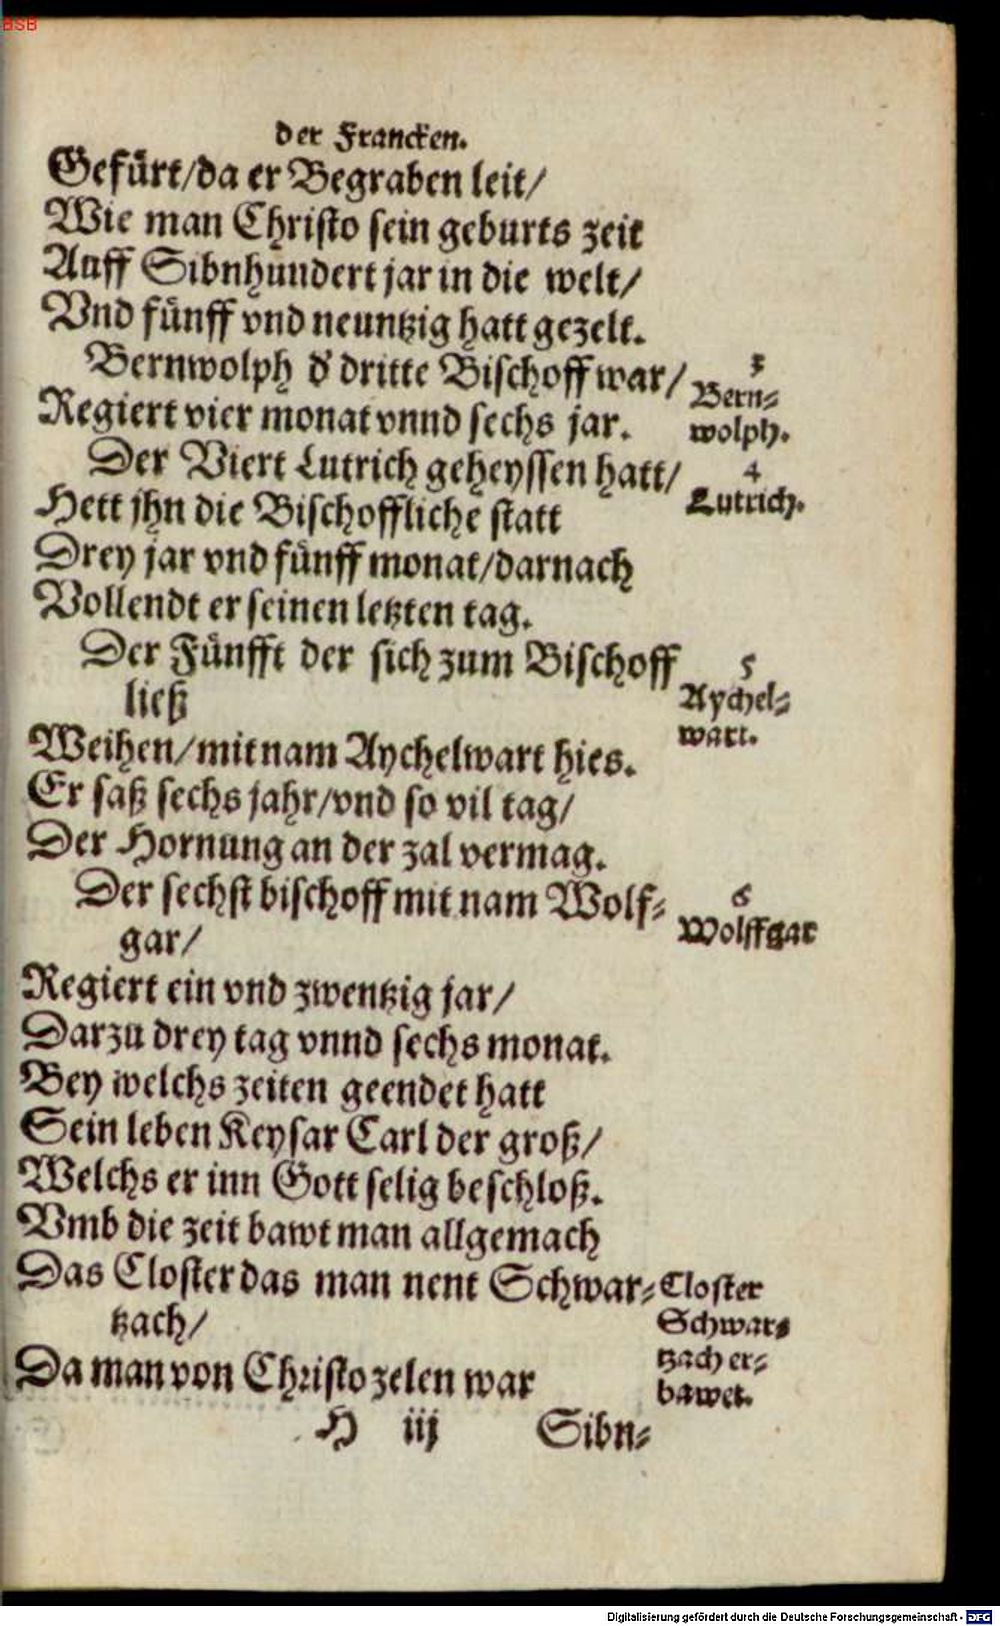 BSB
der Francken.
Gefürt/da er Begraben leit/
Wie man Christo sein geburts zeit
Auff Sibnhundert jar in die welt/
Vnd fünff vnd neuntzig hatt gezelt.
Bernwolph d' dritte Bischoff war/
3
Bern-
wolph.
Regiert vier monat vnnd sechs jar.
Der Viert Lutrich geheyssen hatt/
4
Lutrich.
Hett jhn die Bischoffliche statt
Drey jar vnd fünff monat/darnach
Vollendt er seinen letzten tag.
Der Fünfft der sich zum Bischoff
ließ
5
Aychel-
wart.
Weihen/mit nam Aychelwart hies.
Er saß sechs jahr/vnd so vil tag/
Der Hornung an der zal vermag.
Der sechst bischoff mit nam Wolf-
gar/
6
Wolffgar
Regiert ein vnd zwentzig jar/
Darzu drey tag vnnd sechs monat.
Bey welchs zeiten geendet hatt
Sein leben Keysar Carl der groß/
Welchs er inn Gott selig beschloß.
Vmb die zeit bawt man allgemach
Das Closter das man nent Schwar-
tzach/
Closter
Schwar-
tzach er-
bawet.
Da man von Christo zelen war
H iij
Sibn-
Digitalisierung gefördert durch die Deutsche Forschungsgemeinschaft - DFG